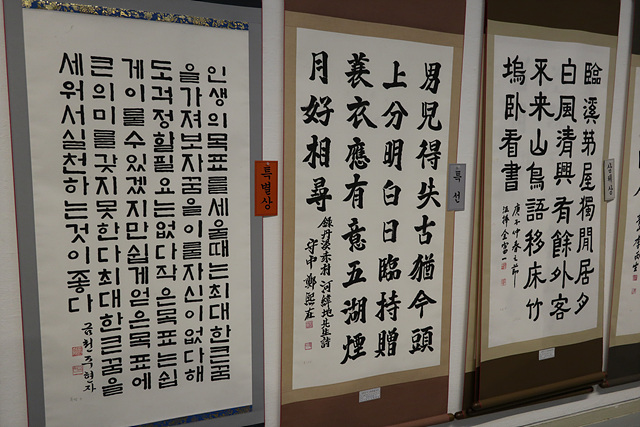 인생의목표를세울때는최대한큰꿈
을가져보자꿈을이룰자신이없다해
도걱정할필요는없다작은목표는쉽
게이룰수있겠지만쉽게얻은목표에
큰의미를갖지못한다최대한큰꿈을
세워서실천하는것이좋다
특별상
男兒得失古猶今頭
上分明白日臨持贈
蓑衣應有意五湖煙
月好相尋
河緯地先生詩
守中 鄭熙在
특선
臨溪茅屋獨閒居月
白風清興有餘外客
不来山鳥語移床竹
塢臥看書